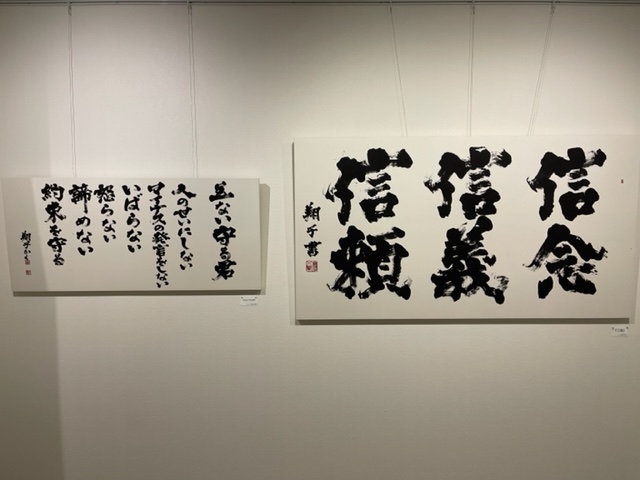 信念
信義
信頼
翔子書
五ない守る君
人のせいにしない
マイナスの発言をしない
いばらない
怒らない
諦めない
約束を守る
翔子かく